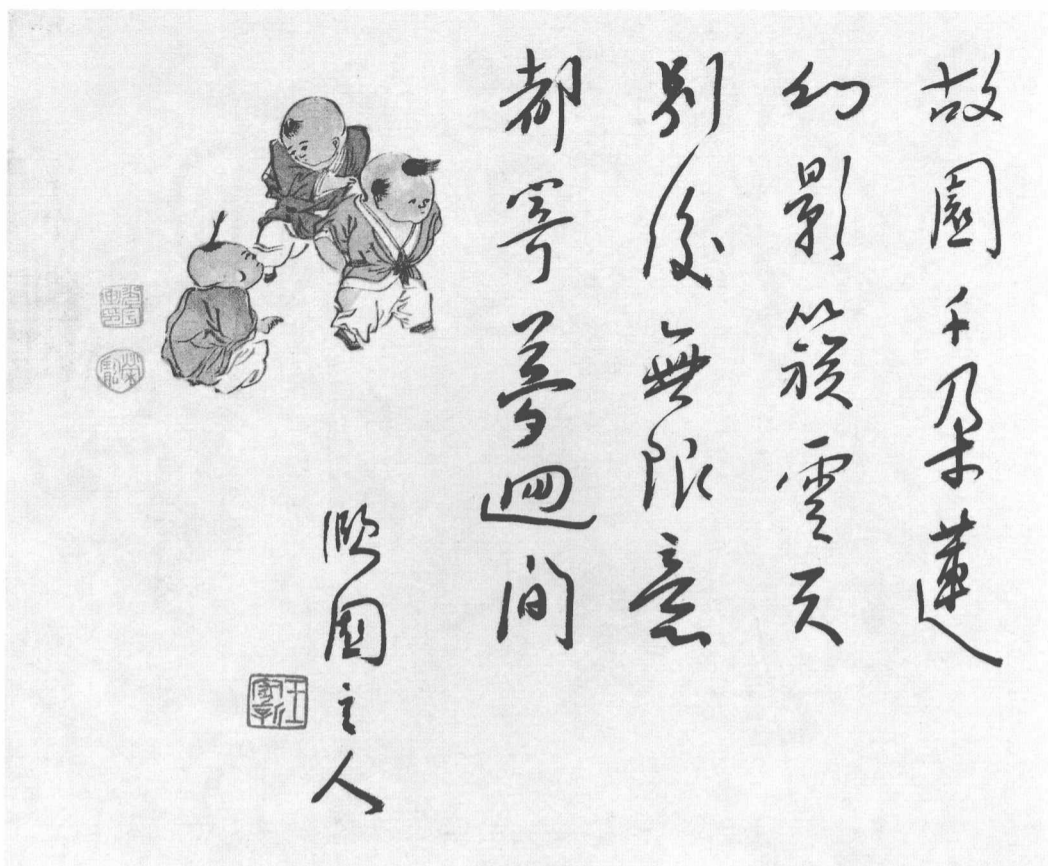 故園千朵蓮
幻影簇雲天
別後無限意
都寄夢迴間
園主人